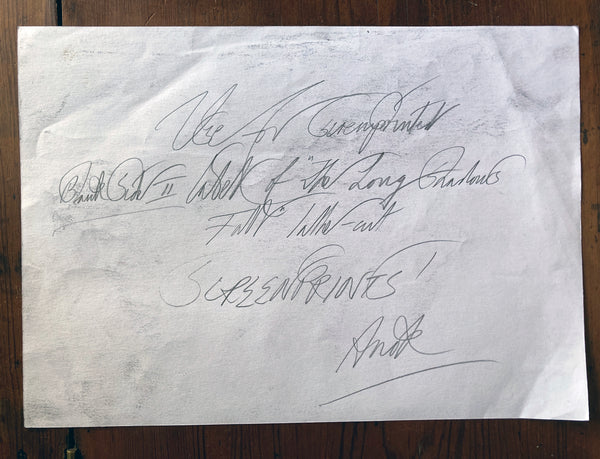 Use for Screenprinted
Blank Side II label of "The Long Shadows
Fall" lathe-cut
SCREENPRINTS!